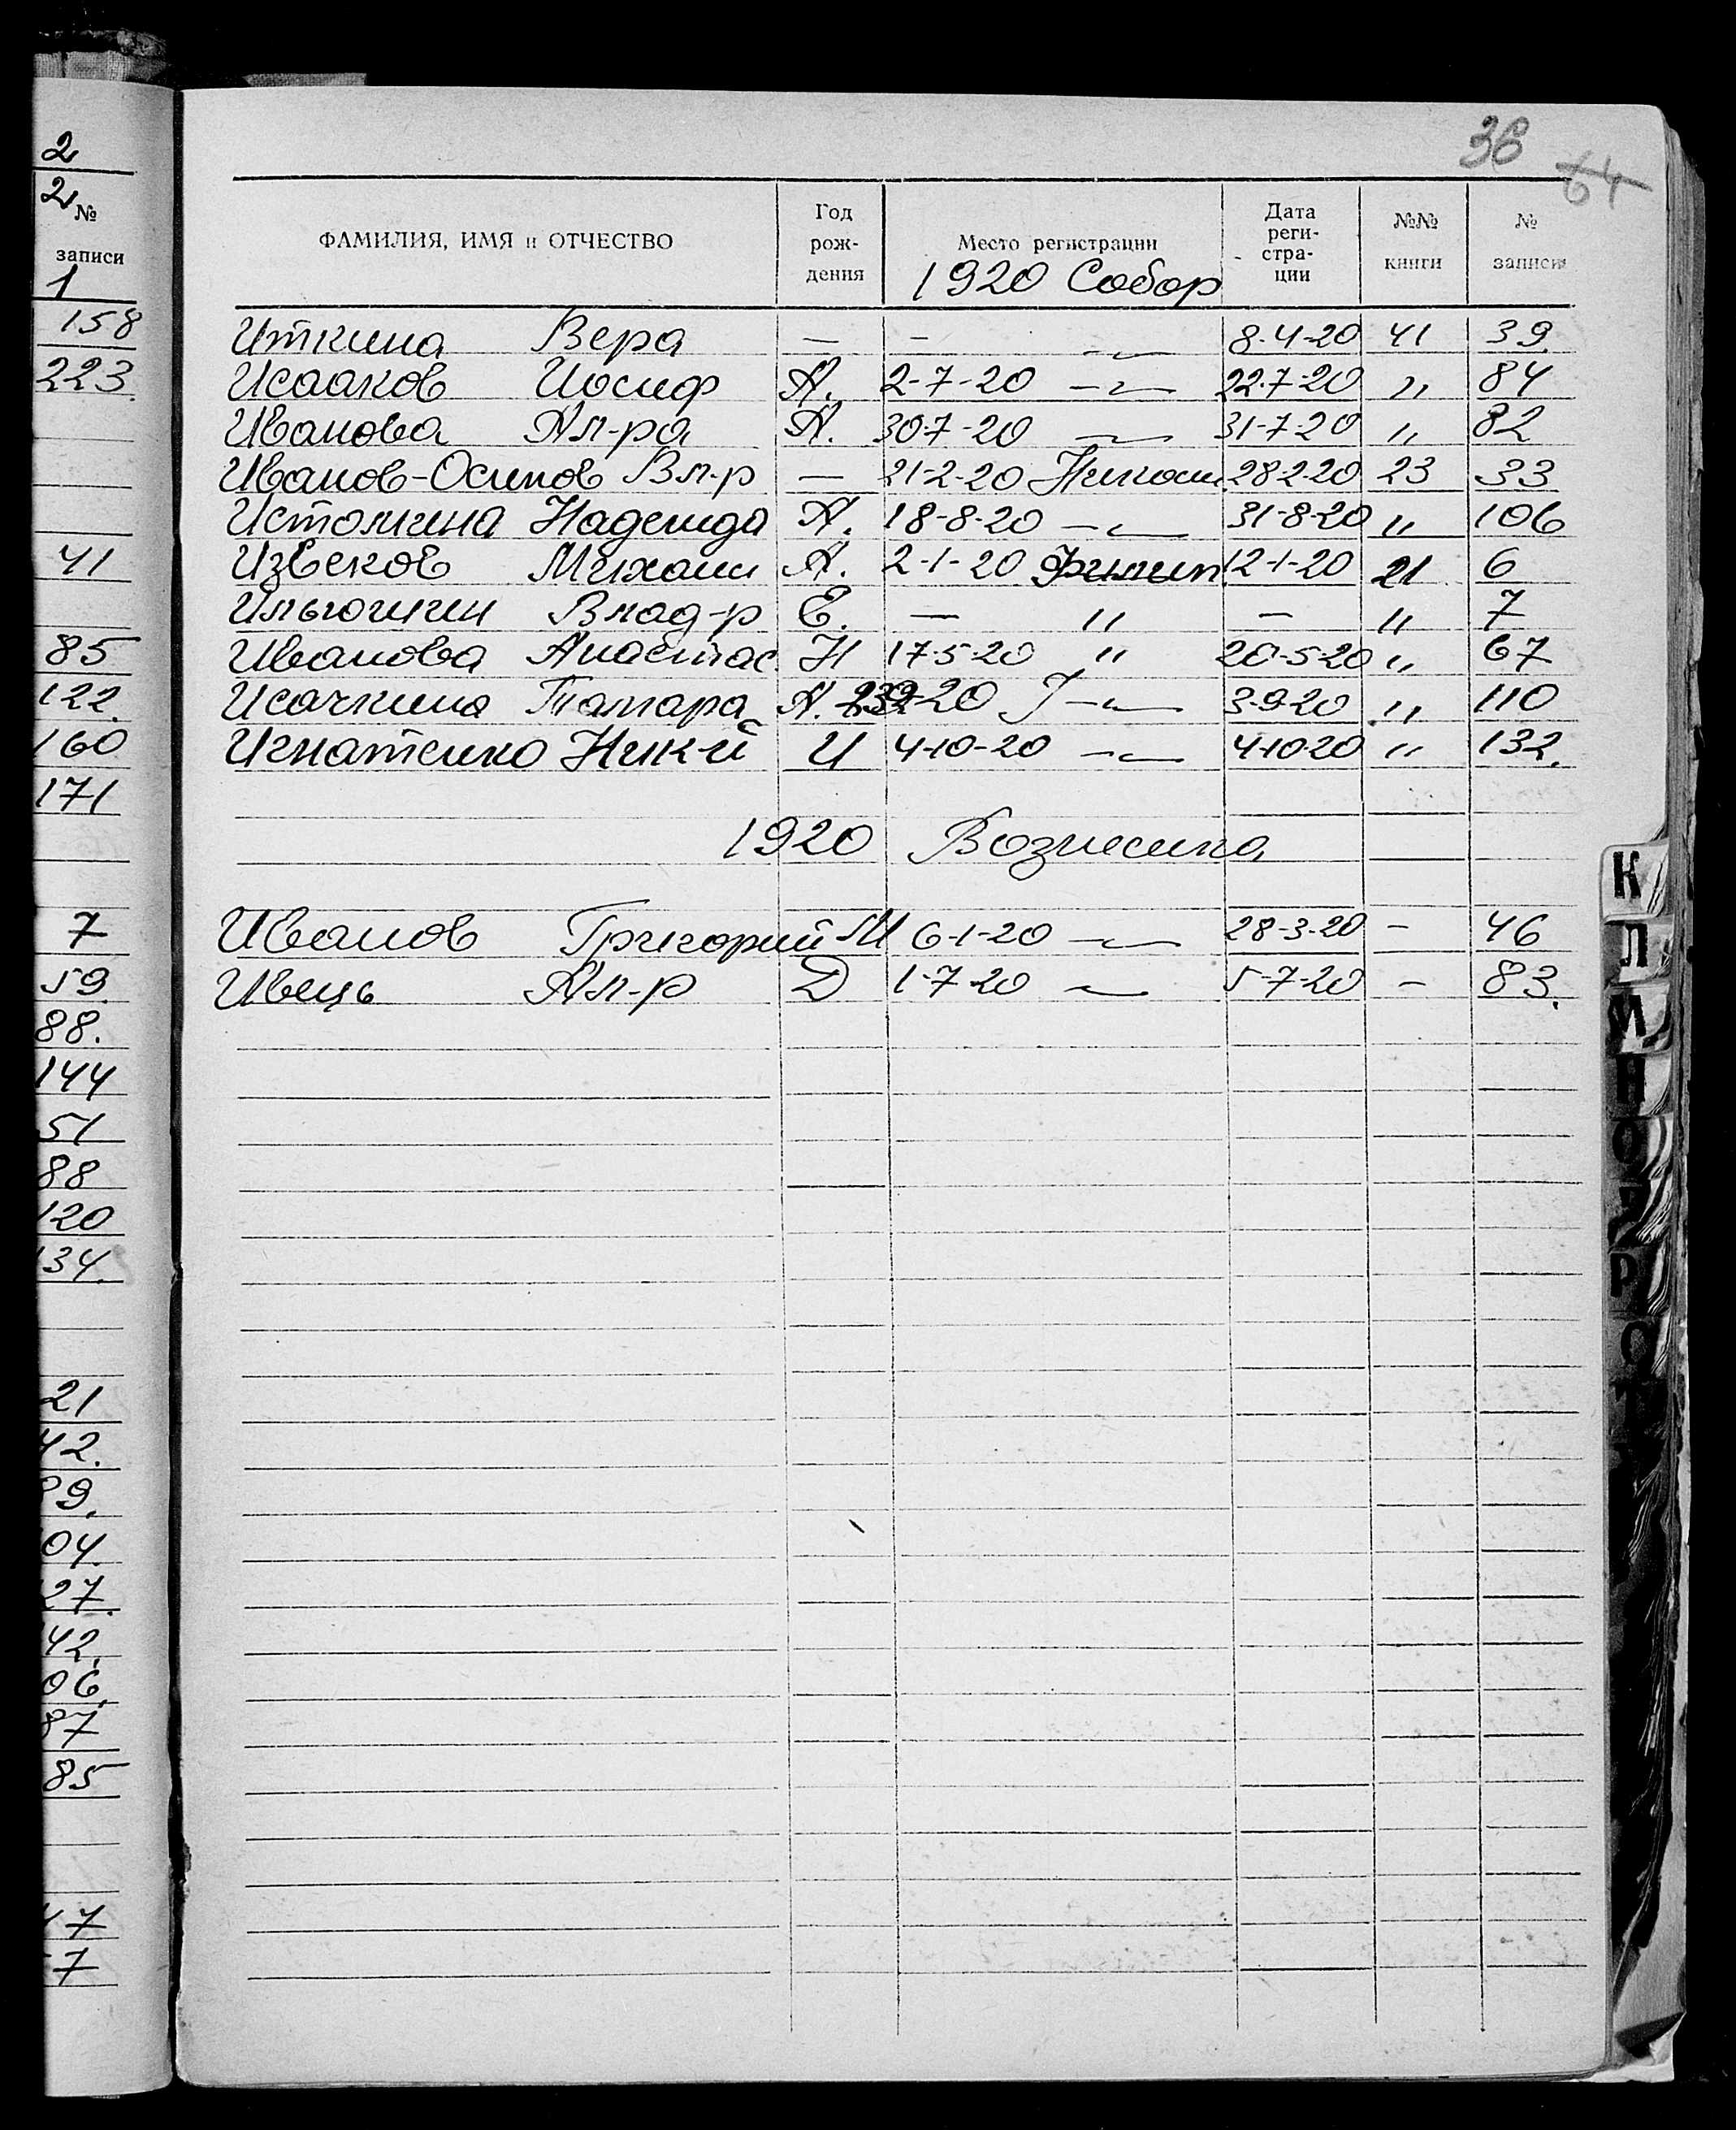 2
2
№
записи
1
158
223.
41
85
122.
160
171
7
59.
88.
144
51
88
120
134.
21
42.
9.
04.
27.
42.
06.
87
85
47
7
36 64
ФАМИЛИЯ, ИМЯ и ОТЧЕСТВО Год рож-дения Место регистрации Дата реги-стра-ции №№ книги № записи
1920 Собор
Иткина Вера — — —"— 8-4-20 41 39.
Исааков Иосиф А. 2-7-20 —"— 22.7-20 " 84
Иванова Ал-ра А. 30.7-20 —"— 31-7-20 " 82
Иванов-Осипов Вл-р — 21-2-20 Никола 28-2-20 23 33
Истомина Надежда А. 18-8-20 —"— 31-8-20 " 106
Извеков Михаил А. 2-1-20 Филип 12-1-20 21 6
Ильючин Влад-р Е. — " — " 7
Иванова Анастас Н 17-5-20 " 20-5-20 " 67
Исачкина Тамара А. -20 —"— 3-9-20 " 110
Игнатенко Ник-й И 4-10-20 —"— 4-10-20 " 132.
1920 Вознесенка
Иванов Григорий М 6-1-20 —"— 28-3-20 — 46
Ивець Ал-р Д 1-7-20 —"— 5-7-20 — 83.
К
Л
М
Н
О
П
Р
С
Т